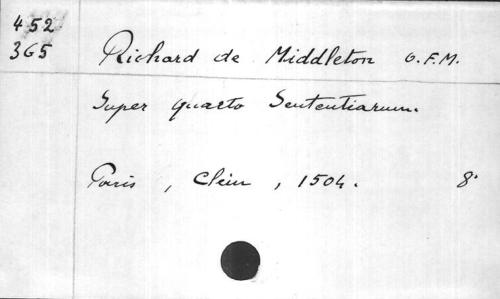 452
365
Richard de Middleton O.F.M.
Super quarto Sententiarum.
Paris, Clein, 1504. 8°